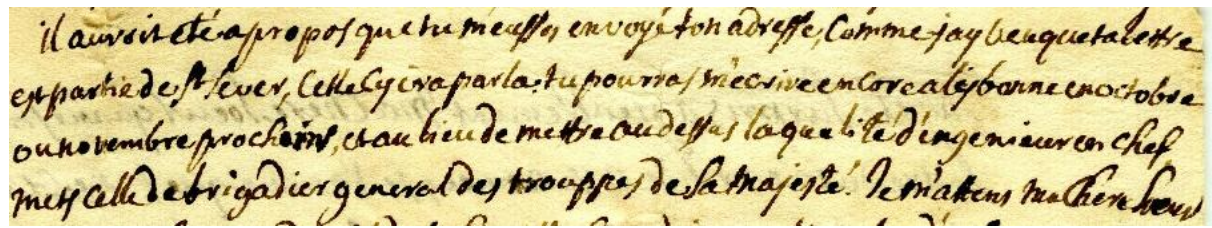 il auroit eté apropos que tu m'eusses envoyé ton adresse, Comme j'ay veu que ta lettre
est partie de St Sever, Celle Cy ira par la. tu pourras m'ecrire encore a lisbonne en octobre
ou novembre prochains, et au lieu de mettre au dessus la qualité d'ingenieur en chef,
mets celle de brigadier general des trouppes de Sa Majesté. Je m'attens ma Chere Soeur